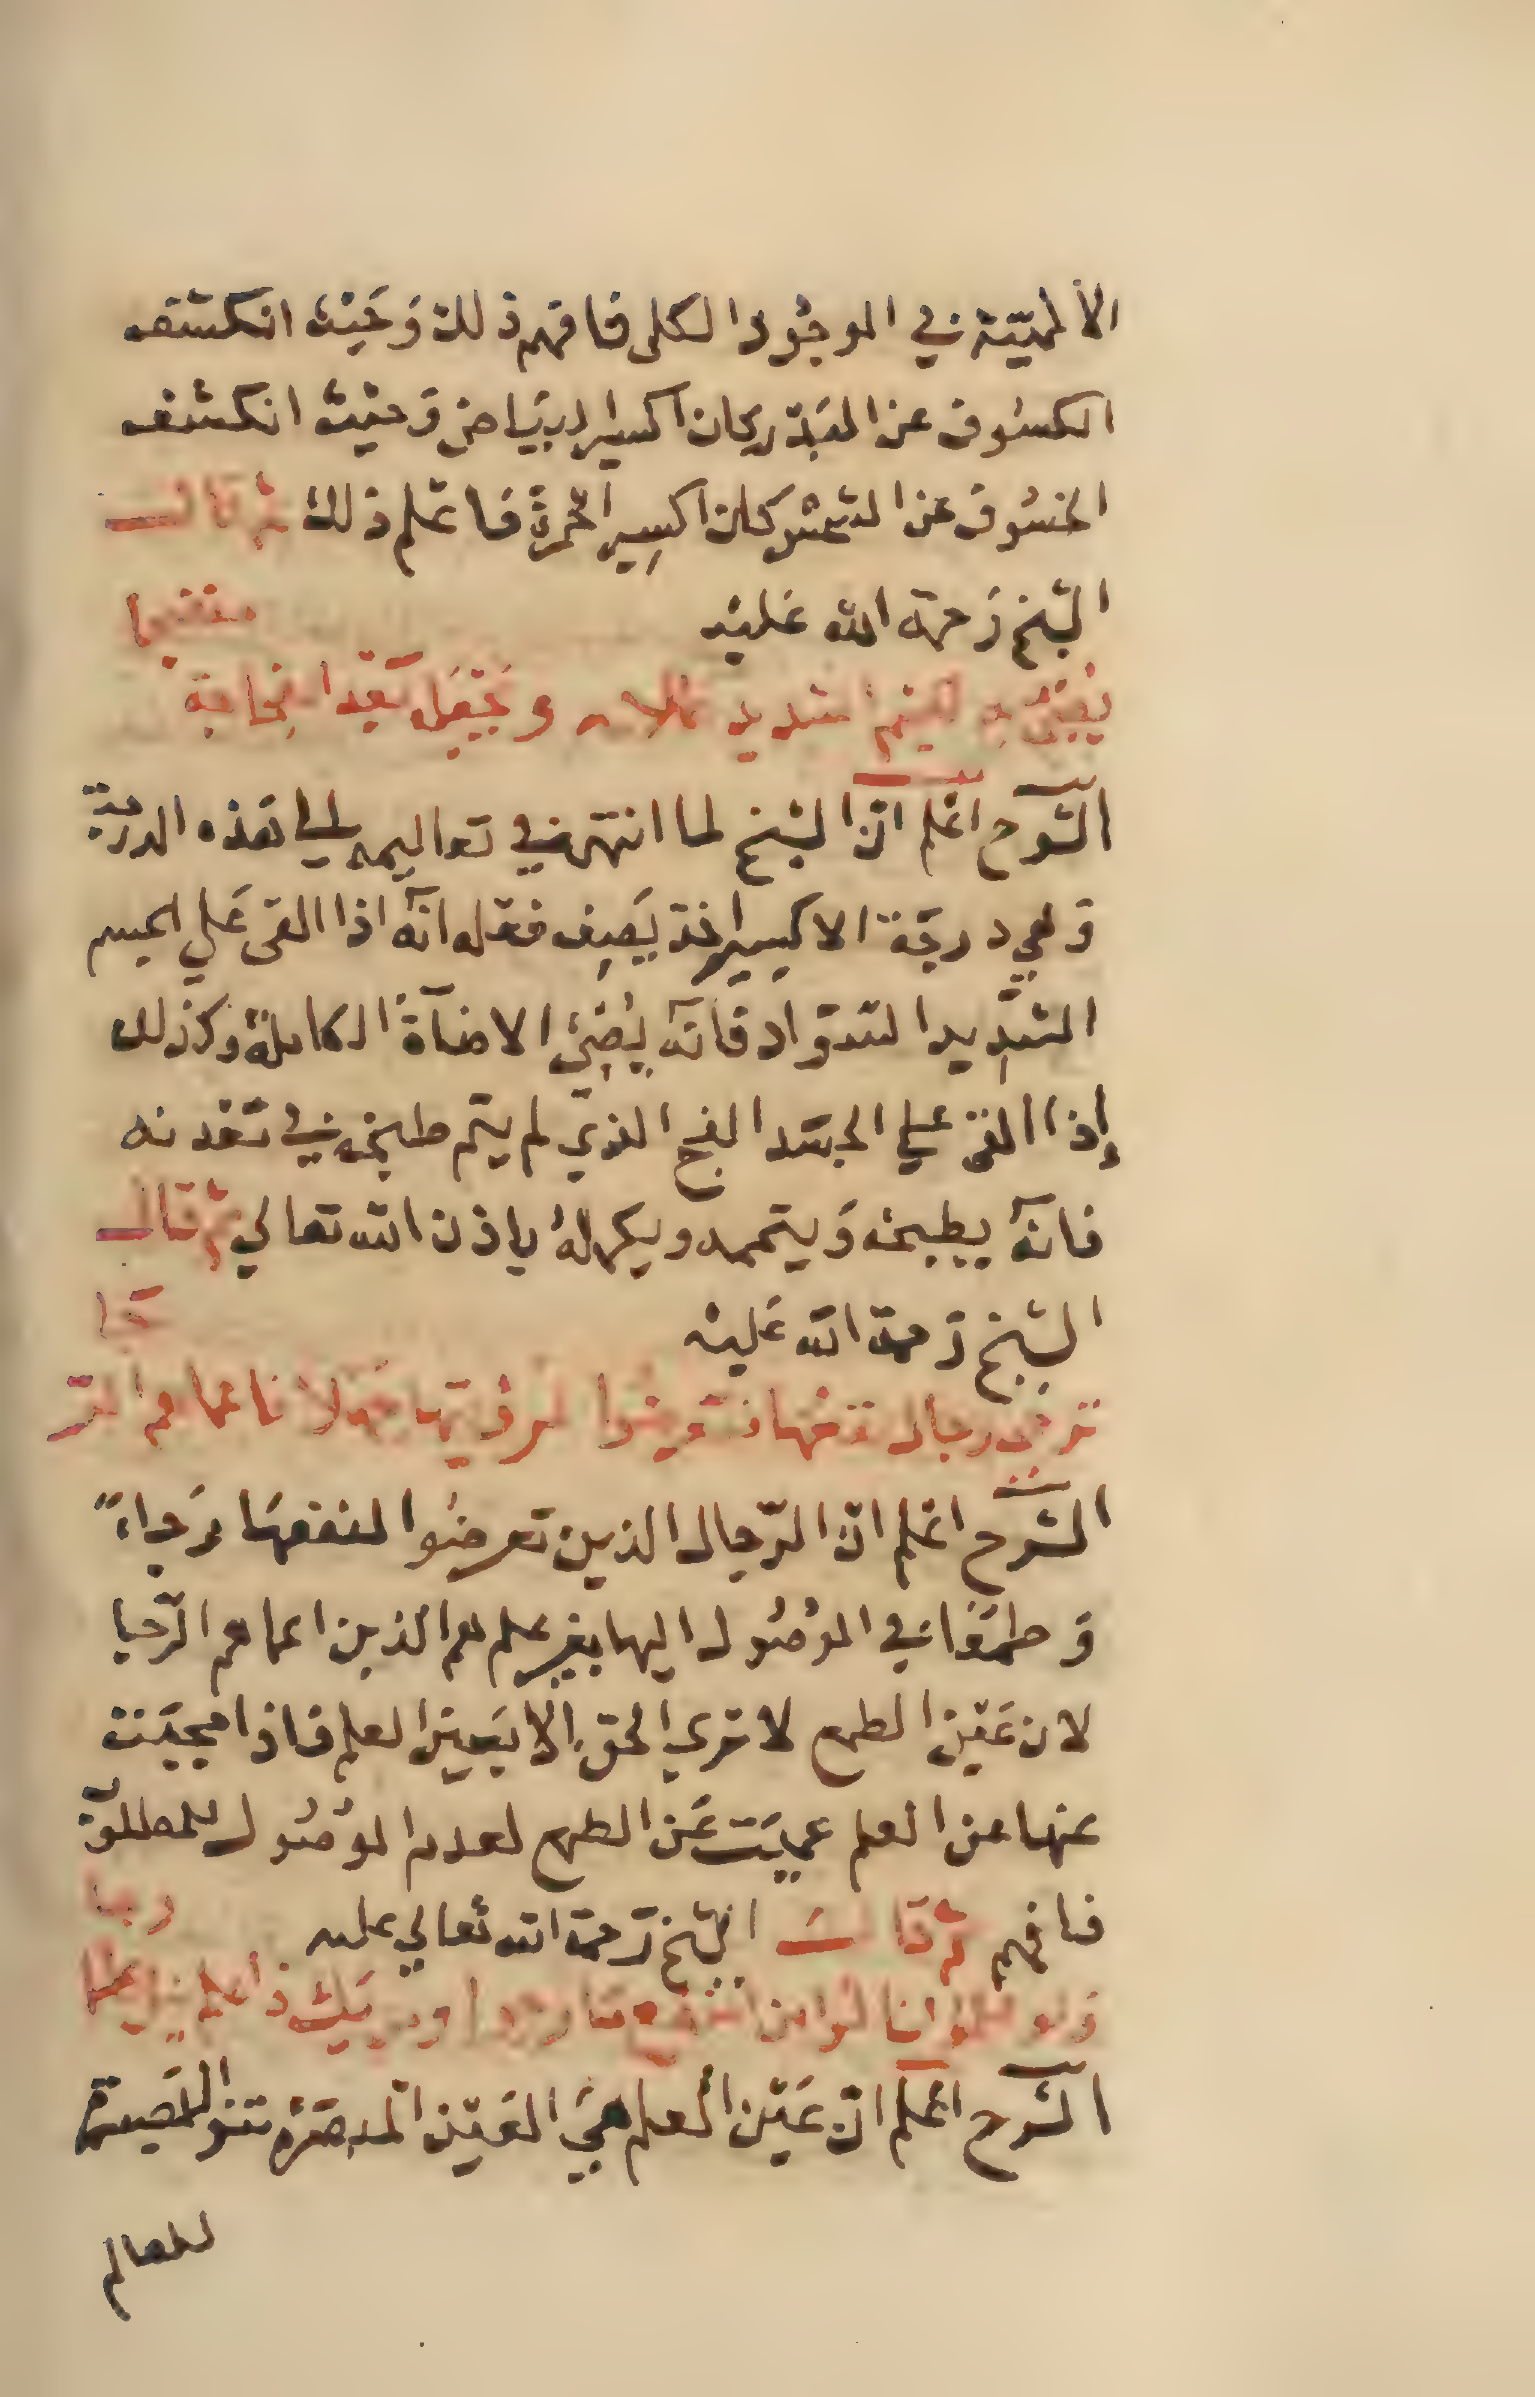 الألهيّة في الموجُود الكلى فافهم ذلك وَحَيْث انكشف
الكسُوف عن البَدر كان اكسير البيَاض وَحيْث انكشف
الخسُوف عن الشمس كان اكسير الحمرة فاعلم ذلك ثم قال
الشيخ رَحمة الله عَليْه
يُضئ به الجسم الشديد ظلامه وَيجْعَله بَعْد الفجاجة
الشرح اعْلم انّ الشيخ لما انتهى في تعاليمه الي هَذه الدرجة
وَهي درجَة الاكسير اخذ يَصِف فعله انّه اذا القى عَلي الجسم
الشّدِيد السّوَاد فانّه يُضِئ الاضآة الكاملة وكذلك
إذا القى علي الجسَد الفج الذي لم يتم طبخه في مَعْدنه
فانّه يطبخه وَيتممه ويكملهُ باذن الله تعالي ثم قال
الشيخ رَحمة الله عَليْه
رجال نفعها فتعرضُوا جهلا فاعماهم
الشرح اعْلم انّ الرّجال الذين تعرضُوا لنفعهَا رَجاءً
وَطمَعًا في الوُصُول اليها بغير علم هم الذين اعماهم الرّجا
لان عَيْن الطمع لا تري الحق إلا بعَين العلم فاذا حجبَت
عنها عين العلم عميَت عَين الطمع لعدم الوُصُول للمطلوب
فافهم ثم قال الشيخ رَحمة الله تعالي عليه
وَلو انا
الشرح اعْلم انّ عَيْن العلم هيَ العَيْن المبصرَة بنُور البَصيرة
للعالم